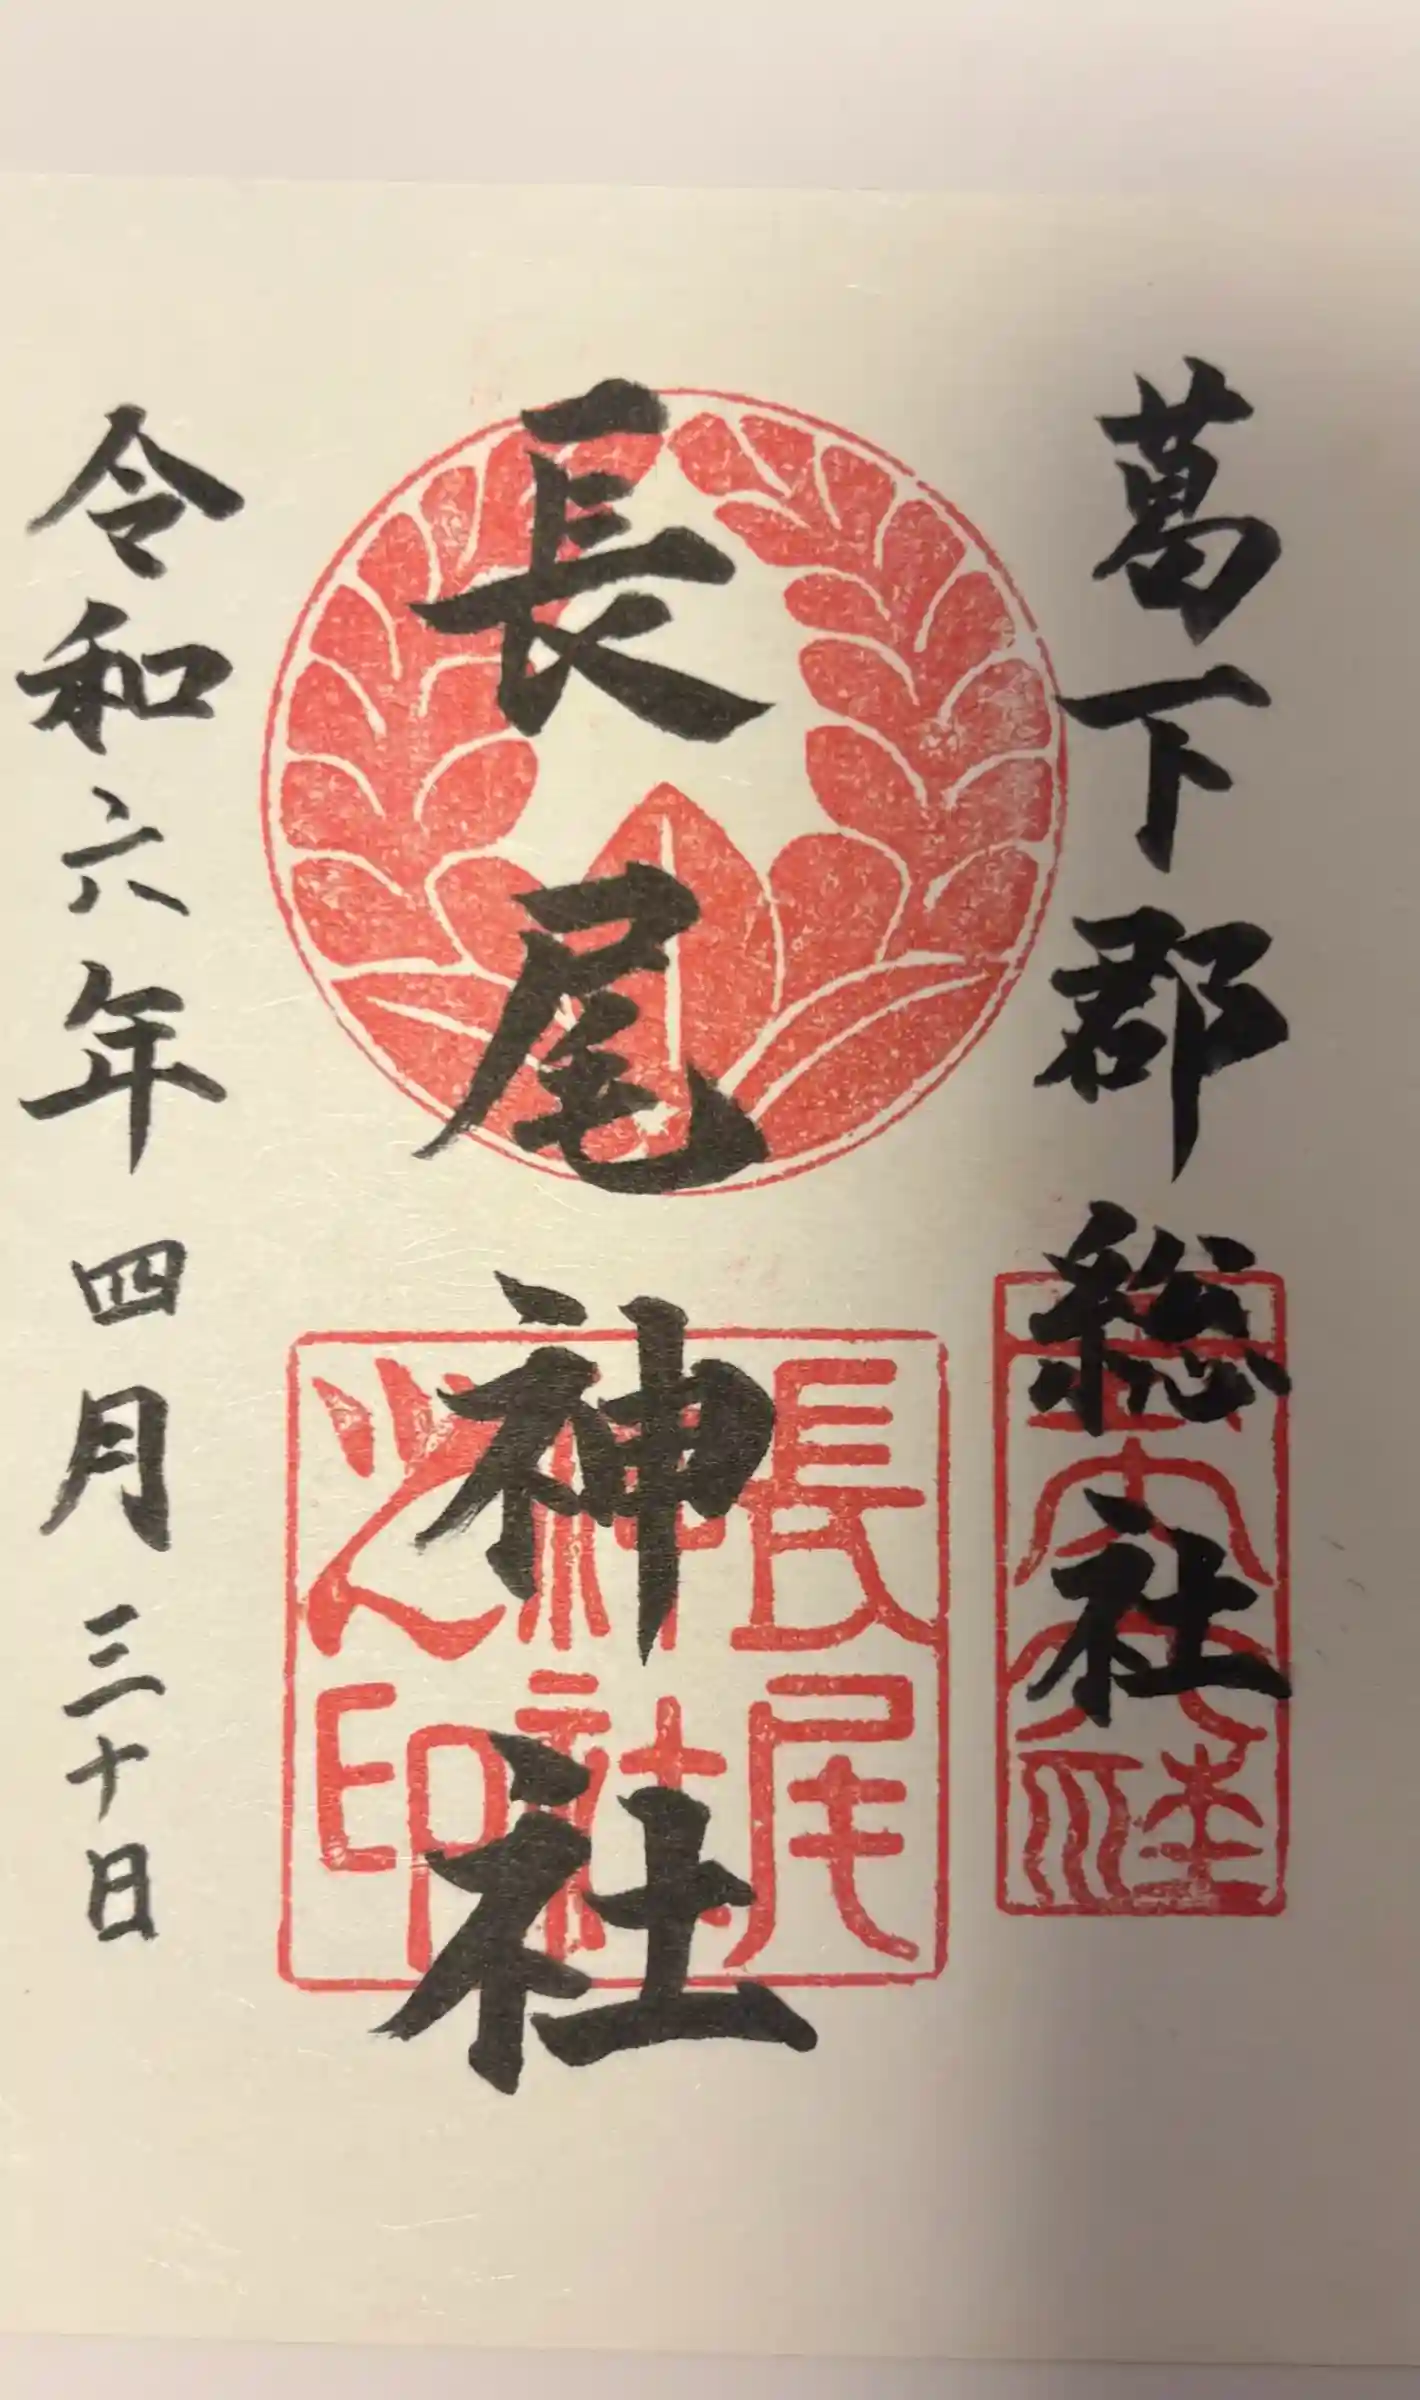 葛下郡総社
長尾神社
長尾
神社
之印
令和六年四月三十日